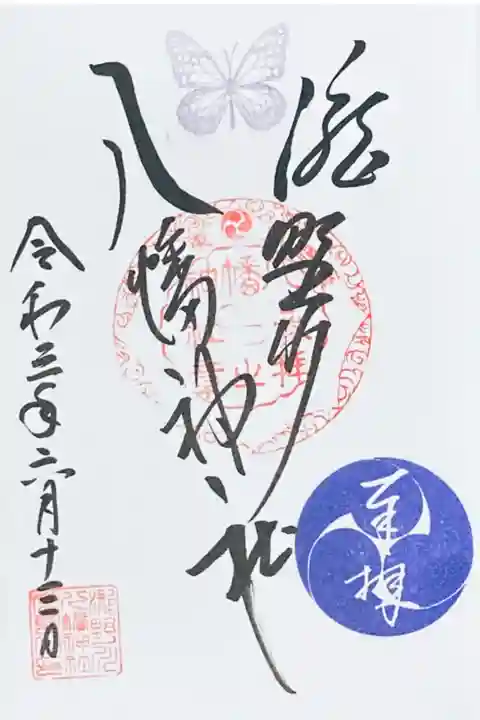 滝野川
八幡神社
令和三年六月十三日
奉拝